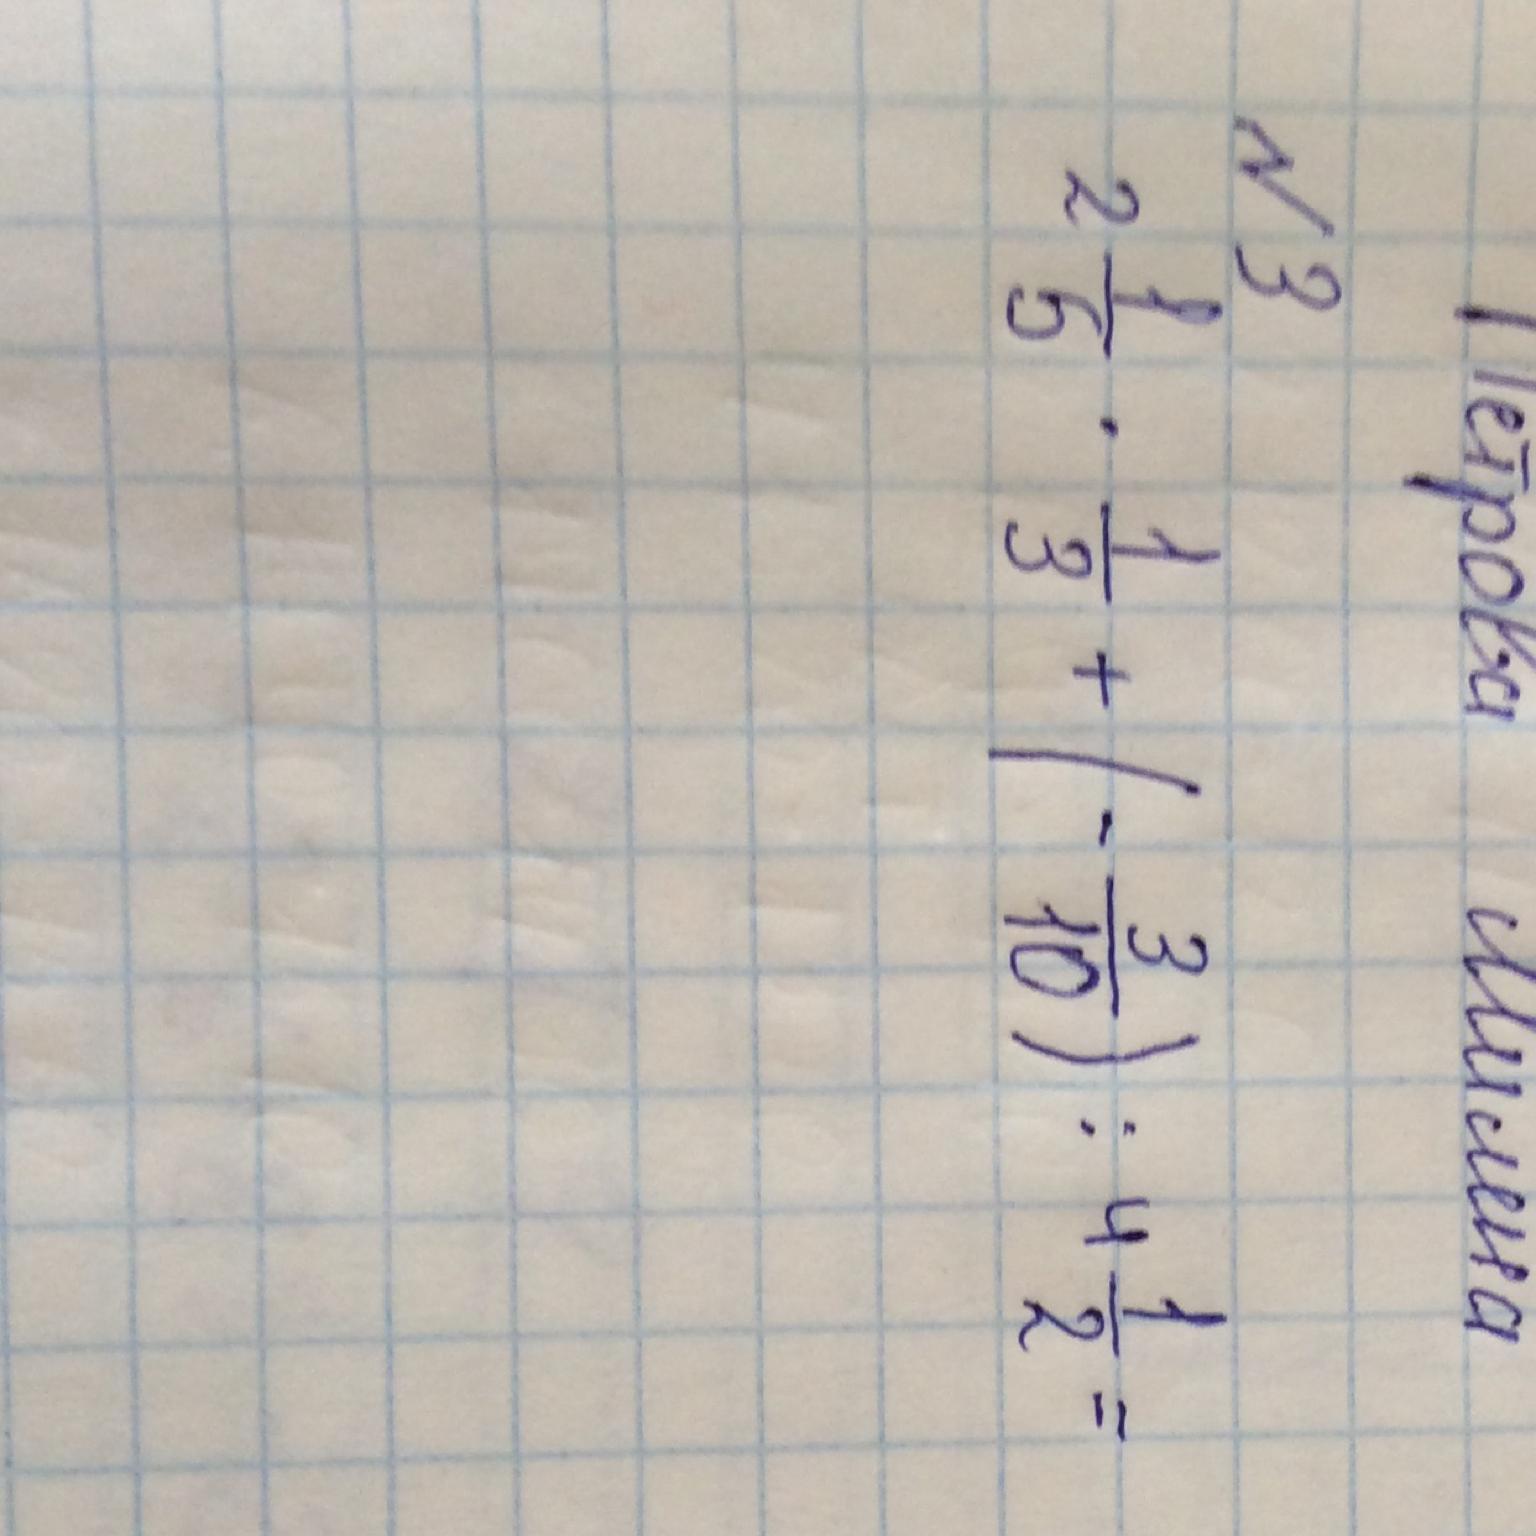 Петрова Милена
№3
2 1/5 · 1/3 + (- 3/10) : 4 1/2 =